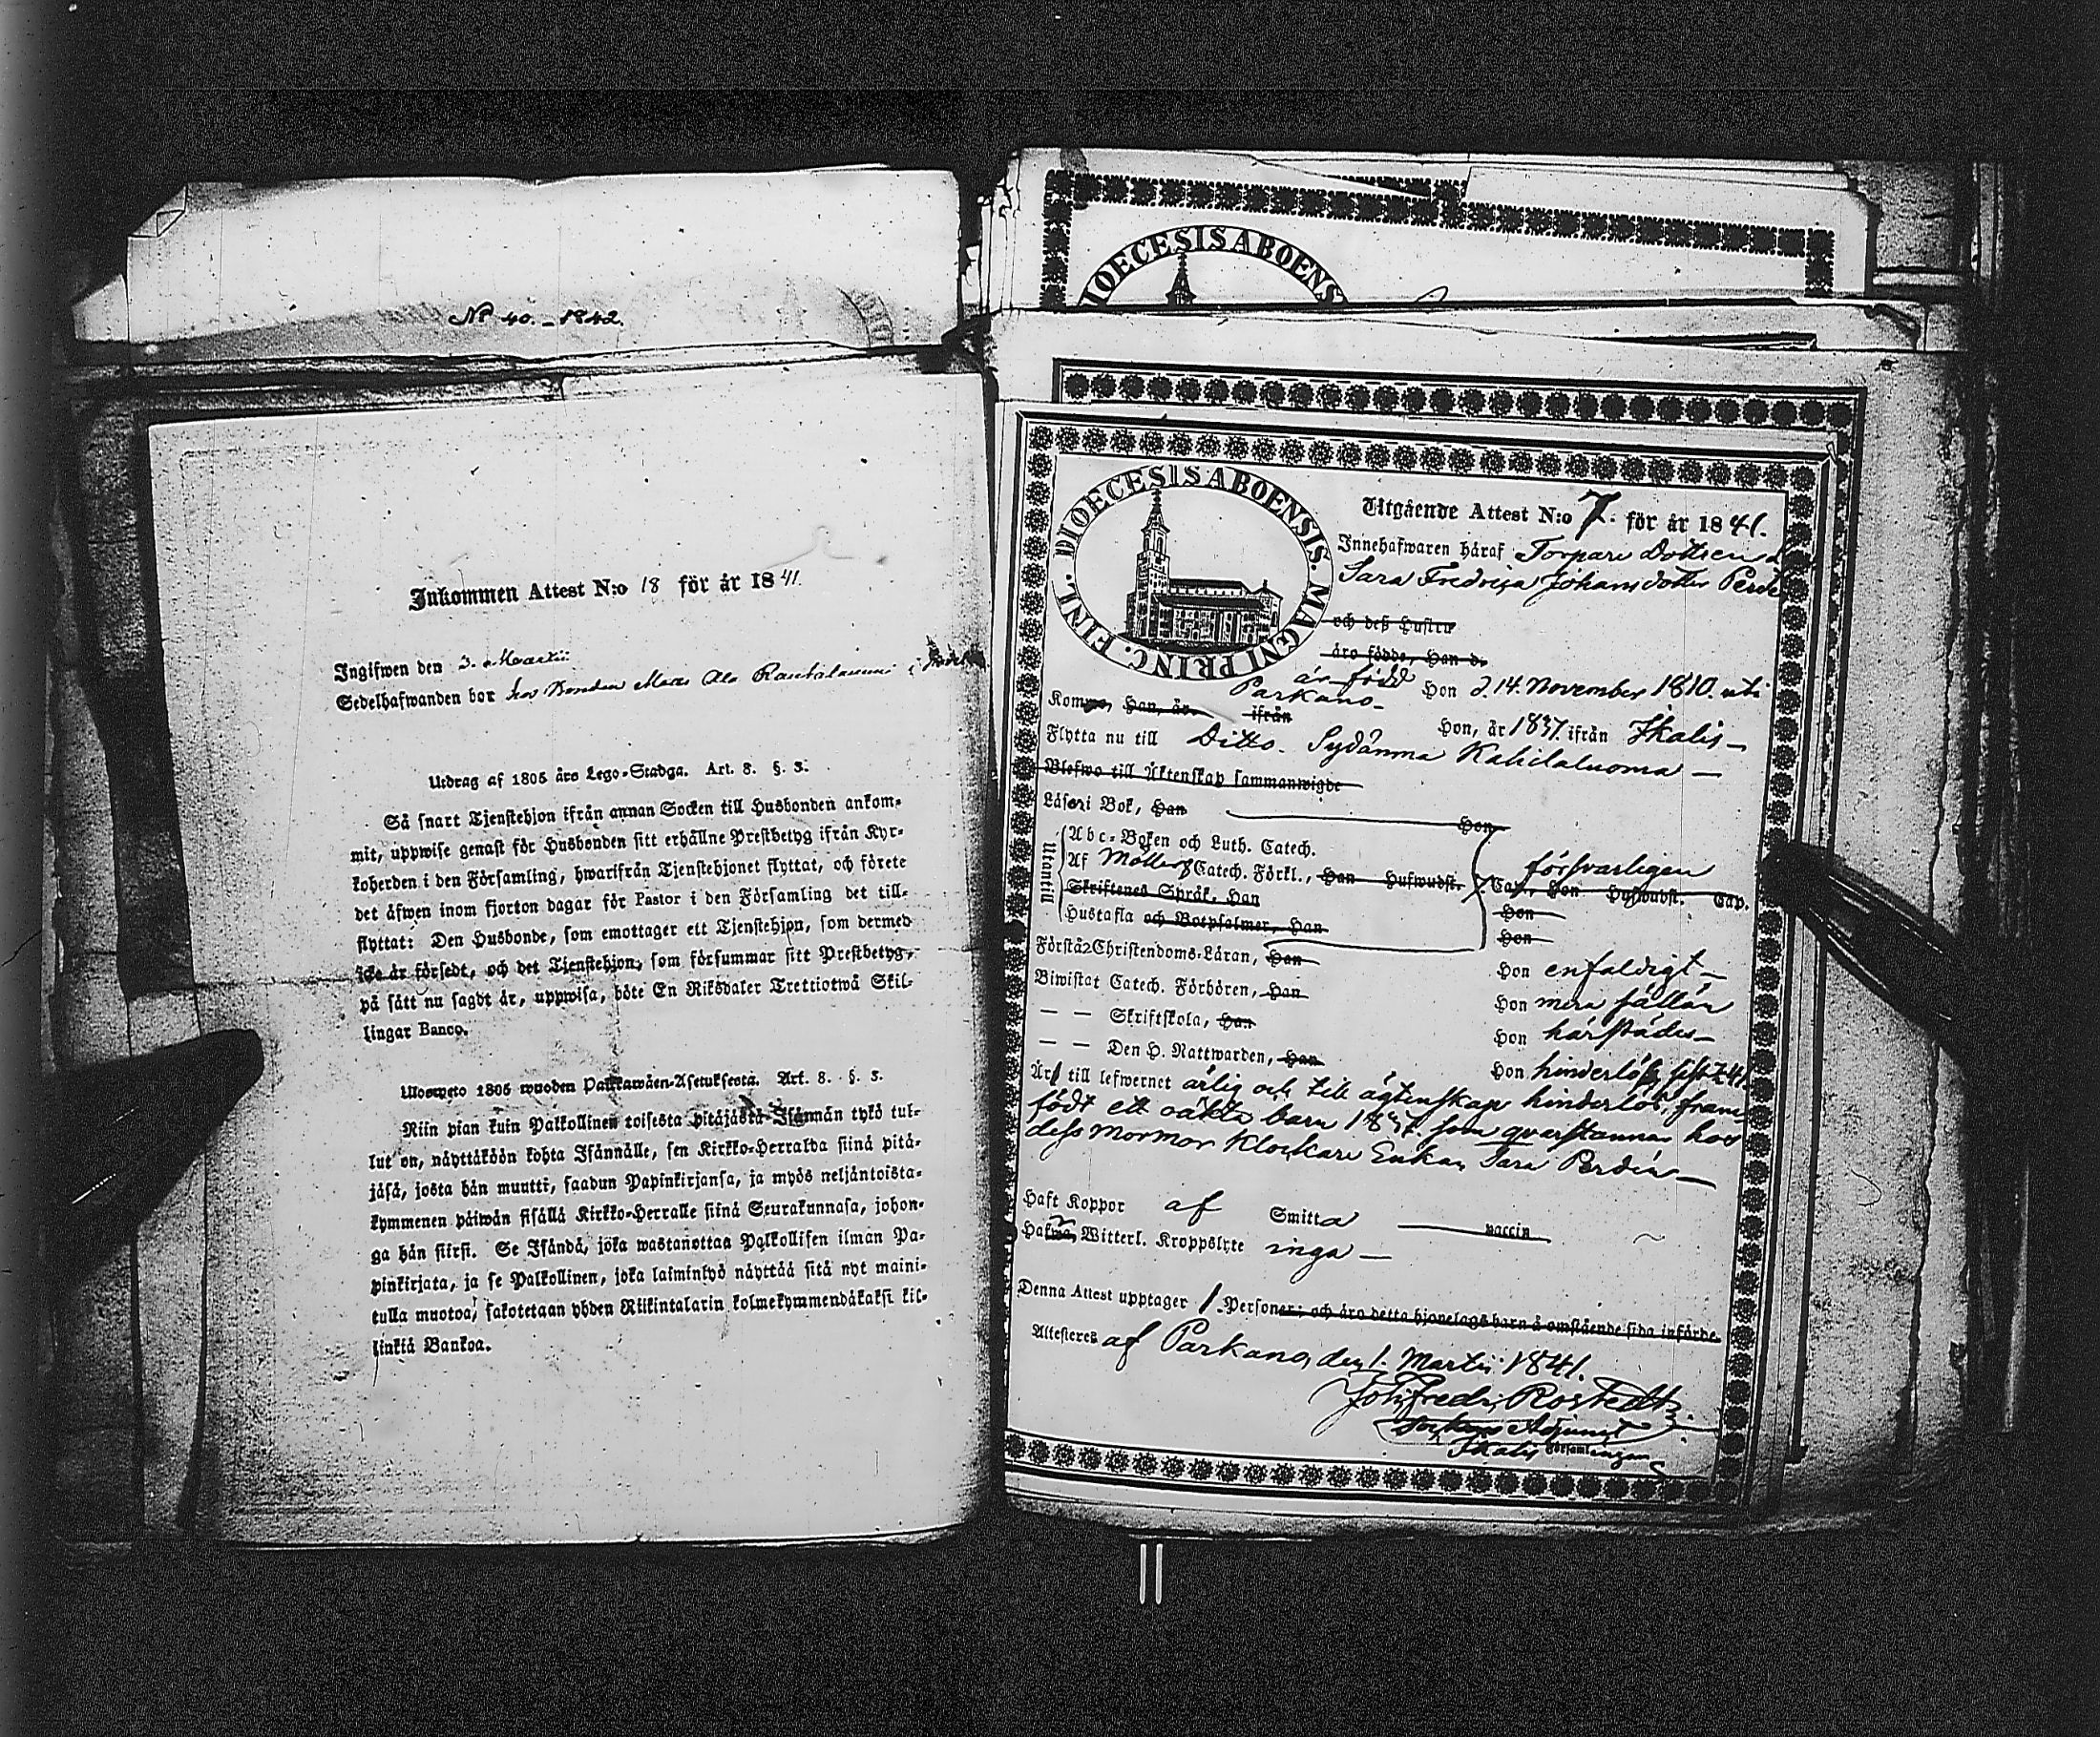 No 40. – 1842.
Inkommen Attest N:o 18 för år 1841.
Ingifwen den 3. Martii
Sedelhafwanden bor hos Bonden
Utdrag af 1805 års Lego-Stadga. Art. 8. §. 3.
Så snart Tjenstehjon ifrån annan Socken till Husbonden ankom-
mit, uppwise genast för Husbonden sitt erhållne Prestbetyg ifrån Kyr-
koherden i den Församling, hwarifrån Tjenstehjonet flyttat, och förete
det åfwen inom fjorton dagar för Pastor i den Församling det till-
flyttat: Den Husbonde, som emottager ett Tjenstehjon, som dermed
icke år försedt, och det Tjenstehjon, som försummar sitt Prestbetyg,
på sått nu sagdt år, uppwisa, böte En Riksdaler Trettiotwå Skil-
lingar Banco.
Ulosweto 1805 wuoden Palkkawåen-Asetuksesta. Art. 8. §. 3.
Niin pian kuin Palkollinen toisesta pitåjåstå Isånnån tykö tul-
lut on, nåyttåköön kohta Isånnålle, sen Kirkko-Herralda siinå pitå-
jåså, josta hån muutti, saadun Papinkirjansa, ja myös neljåntoista-
kymmenen påiwån sisållå Kirkko-Herralle siinå Seurakunnasa, johon-
ga hån siirsi. Se Isåndå, joka wastanottaa Palkollisen ilman Pa-
pinkirjata, ja se Palkollinen, joka laiminlyö nåyttåå sitå nyt maini-
tulla muotoa, sakotetaan yhden Riikintalarin kolmekymmendåkaksi kil-
linkiå Bankoa.
DIOECESIS ABOENS
DIOECESIS ABOENSIS. MAGNI PRINC. FINL.
Utgående Attest N:o 7. för år 1841.
Innehafwaren håraf Torpare Dottren
Sara Fredrica Johansdotter
och deß Hustru
åro födde, Han d.
är född Hon d. 14. November 1810. uti
Parkano.
Kommo, Han, år ifrån Hon, år 1837. ifrån Ikalis –
Flytta nu till Ditto. Sydänma Kahilaluoma –
Blefwo till Äktenskap sammanwigde
Låser i Bok, Han Hon
Utantill
Abc-Boken och Luth. Catech.
Af Möllers Catech. Förkl., Han Hufwudst. Cap., Hon Hufwudst. Cap.
försvarligen
Skriftenes Språk, Han Hon
Hustafla och Botpsalmer, Han Hon
Förstå Christendoms-Låran, Han Hon enfaldigt –
Biwistat Catech. Förhören, Han Hon mera sällan
— — Skriftskola, Han Hon härstädes –
— — Den H. Nattwarden, Han Hon hinderlös,
År till lefwernet ärlig och till ägtenskap hinderlös, fram-
födt ett oäkta barn 1837. som qvarstannar hos
dess mormor Klockare Enkan Sara Perdén –
Haft Koppor af Smitta vaccin
Hafwa Witterl. Kroppslyte inga –
Denna Attest upptager 1 Personer; och åro detta hjonelags barn å omstående sida införde.
Attesteres af Parkano, den 1. Martii 1841.
Joh. Fredr. Rostedt
Sockne Adjunct
Ikalis Församlingen